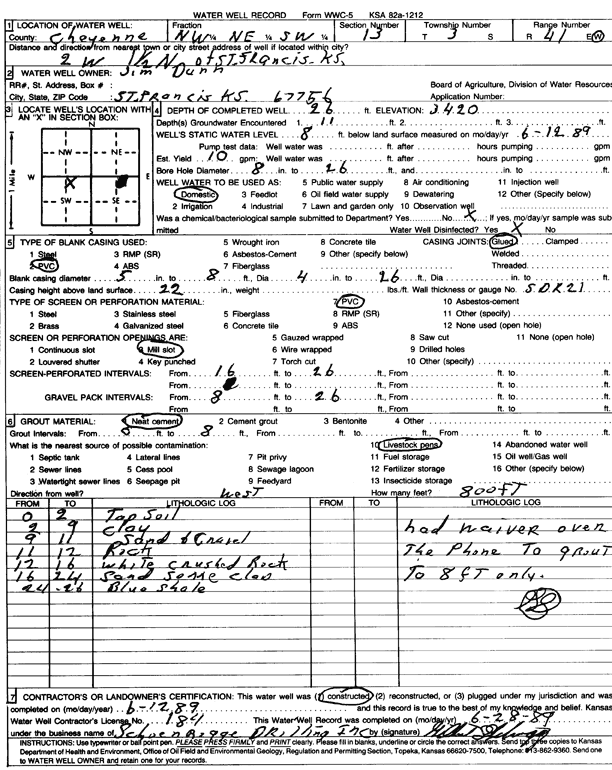 WATER WELL RECORD Form WWC-5 KSA 82a-1212
1 LOCATION OF WATER WELL: Fraction Section Number Township Number Range Number
County: Cheyenne NW ¼ NE ¼ SW ¼ 13 T 3 S R 41 E(W)
Distance and direction from nearest town or city street address of well if located within city?
2 W 1/2 N of St. Francis KS.
2 WATER WELL OWNER: Jim Dunn
RR#, St. Address, Box # : Board of Agriculture, Division of Water Resources
City, State, ZIP Code : St. Francis KS. 67756 Application Number:
3 LOCATE WELL'S LOCATION WITH AN "X" IN SECTION BOX: 4 DEPTH OF COMPLETED WELL 26 ft. ELEVATION: 3420
Depth(s) Groundwater Encountered 1. 11 ft. 2. ft. 3. ft.
WELL'S STATIC WATER LEVEL 8 ft. below land surface measured on mo/day/yr 6-12-89
Pump test data: Well water was ft. after hours pumping gpm
Est. Yield 10 gpm: Well water was ft. after hours pumping gpm
Bore Hole Diameter 8 in. to 26 ft., and in. to ft.
WELL WATER TO BE USED AS: 5 Public water supply 8 Air conditioning 11 Injection well
1 Domestic 3 Feedlot 6 Oil field water supply 9 Dewatering 12 Other (Specify below)
2 Irrigation 4 Industrial 7 Lawn and garden only 10 Observation well
Was a chemical/bacteriological sample submitted to Department? Yes No X; If yes, mo/day/yr sample was submitted
Water Well Disinfected? Yes X No
N
NW NE
W E
X
SW SE
S
1 Mile
5 TYPE OF BLANK CASING USED: 5 Wrought iron 8 Concrete tile CASING JOINTS: Glued Clamped
1 Steel 3 RMP (SR) 6 Asbestos-Cement 9 Other (specify below) Welded
2 PVC 4 ABS 7 Fiberglass Threaded
Blank casing diameter 5 in. to 8 ft., Dia 4 in. to 26 ft., Dia in. to ft.
Casing height above land surface 22 in., weight lbs./ft. Wall thickness or gauge No. SDR21
TYPE OF SCREEN OR PERFORATION MATERIAL: 7 PVC 10 Asbestos-cement
1 Steel 3 Stainless steel 5 Fiberglass 8 RMP (SR) 11 Other (specify)
2 Brass 4 Galvanized steel 6 Concrete tile 9 ABS 12 None used (open hole)
SCREEN OR PERFORATION OPENINGS ARE: 5 Gauzed wrapped 8 Saw cut 11 None (open hole)
1 Continuous slot 3 Mill slot 6 Wire wrapped 9 Drilled holes
2 Louvered shutter 4 Key punched 7 Torch cut 10 Other (specify)
SCREEN-PERFORATED INTERVALS: From 16 ft. to 26 ft., From ft. to ft.
From ft. to ft., From ft. to ft.
GRAVEL PACK INTERVALS: From 8 ft. to 26 ft., From ft. to ft.
From ft. to ft., From ft. to ft.
6 GROUT MATERIAL: 1 Neat cement 2 Cement grout 3 Bentonite 4 Other
Grout Intervals: From 0 ft. to 8 ft., From ft. to ft., From ft. to ft.
What is the nearest source of possible contamination: 10 Livestock pens 14 Abandoned water well
1 Septic tank 4 Lateral lines 7 Pit privy 11 Fuel storage 15 Oil well/Gas well
2 Sewer lines 5 Cess pool 8 Sewage lagoon 12 Fertilizer storage 16 Other (specify below)
3 Watertight sewer lines 6 Seepage pit 9 Feedyard 13 Insecticide storage
Direction from well? West How many feet? 800FT
FROM TO LITHOLOGIC LOG FROM TO LITHOLOGIC LOG
0 2 Top Soil
2 9 Clay had waiver over
9 11 Sand & Gravel
11 12 Rock The Phone To grout
12 16 White crushed Rock
16 24 Sand some clay To 8 FT only.
24 -26 Blue Shale
7 CONTRACTOR'S OR LANDOWNER'S CERTIFICATION: This water well was (1) constructed, (2) reconstructed, or (3) plugged under my jurisdiction and was
completed on (mo/day/year) 6-12-89 and this record is true to the best of my knowledge and belief. Kansas
Water Well Contractor's License No. 184 This Water Well Record was completed on (mo/day/yr) 6-28-89
under the business name of Schoenrogge Drilling Inc by (signature)
INSTRUCTIONS: Use typewriter or ball point pen. PLEASE PRESS FIRMLY and PRINT clearly. Please fill in blanks, underline or circle the correct answers. Send top three copies to Kansas
Department of Health and Environment, Office of Oil Field and Environmental Geology, Regulation and Permitting Section, Topeka, Kansas 66620-7500, Telephone: 913-862-9360. Send one
to WATER WELL OWNER and retain one for your records.